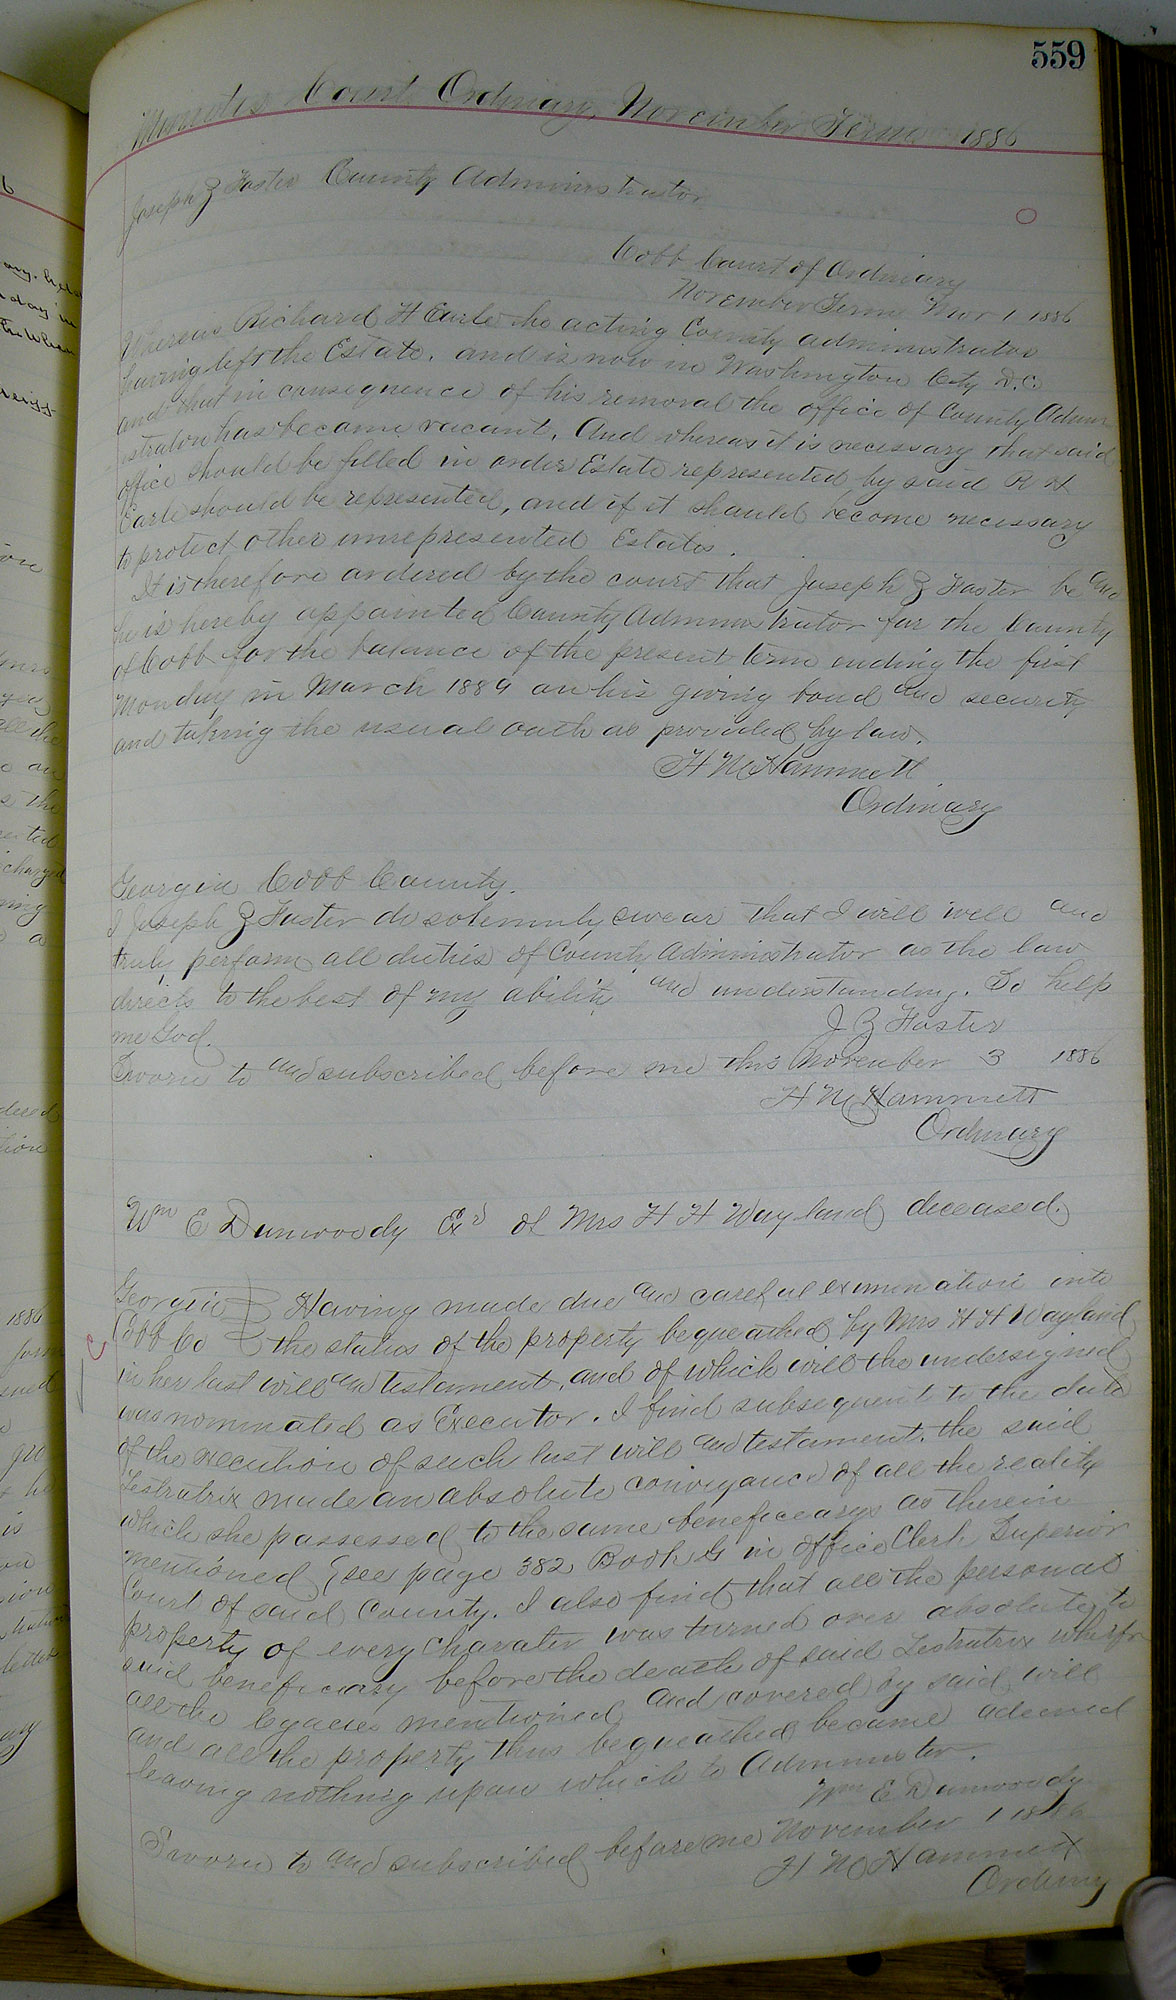 559
Minutes Court Ordinary November Term 1886
Joseph Z Foster County Administrator
Cobb Court of Ordinary
November Term Nov 1 1886
Whereas Richard H Earle who acting County administrator
having left the Estate. and is now in Washington City D.C.
and that in consequence of his removal the office of County Admin
istrator has became vacant. And whereas it is necessary that said
office should be filled in order Estate represented by said R H
Earle should be represented, and if it should become necessary
to protect other unrepresented Estates.
It is therefore ordered by the court that Joseph Z Foster be and
he is hereby appointed County Administrator for the County
of Cobb for the balance of the present term ending the first
Monday in March 1889 on his giving bond and security
and taking the usual oath as provided by law.
H M Hammett
Ordinary
Georgia Cobb County.
I Joseph Z Foster do solemnly swear that I will well and
truly perform all duties of County Administrator as the law
directs to the best of my ability and understanding. So help
me God.
J Z Foster
Sworn to and subscribed before me this November 3 1886
H M Hammett
Ordinary
Wm E Dunwoody Exr of Mrs H H Wayland deceased.
Georgia } Having made due and careful examination into
Cobb Co } the status of the property bequeathed by Mrs H H Wayland
in her last will and testament, and of which will the undersigned
was nominated as Executor. I find subsequent to the date
of the execution of such last will and testament. the said
Testratrix made an absolute conveyance of all the reality
which she possessed to the same beneficearys as therein
mentioned see page 382 Book G in office Clerk Superior
Court of said County. I also find that all the personal
property of every Charater was turned over absolute to
said beneficiary before the death of said Testratrix wherefor
all the legacies mentioned and covered by said will
and all the property thus bequeathed became adeemed
leaving nothing upon which to Administer.
Wm E Dunwoody
Sworn to and subscribed before me November 1 1886
H M Hammett
Ordinary